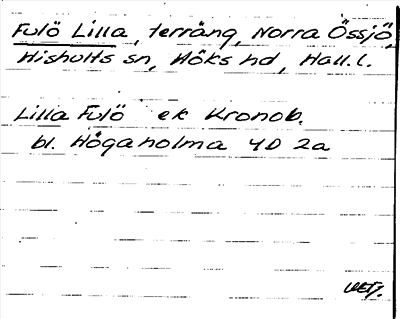 Fulö Lilla, terräng, Norra Össjö,
Hishults sn, Höks hd, Hall. l.
Lilla Fulö ek Kronob.
bl. Högaholma 4D 2a